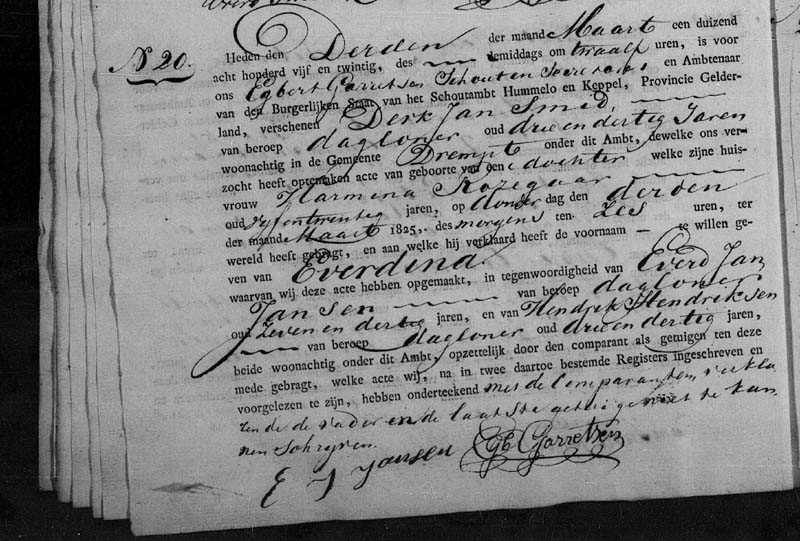 N 20.
Heden den Derden der maande Maart een duizend
acht honderd vijf en twintig, des demiddags om twaalf uren, is voor
ons Egbert Garretsen Schout en Secretaris en Ambtenaar
van den Burgerlijken Staat van het Schoutambt Hummelo en Keppel, Provincie Gelder-
land, verschenen Derk Jan Smid,
van beroep dagloner oud drie en dertig Jaren
woonachtig in de Gemeente Drempt onder dit Ambt, dewelke ons ver-
zocht heeft optemaken acte van geboorte van eene dochter welke zijne huis-
vrouw Harmina Rozegaar
oud vyfentwentig jaren, op donder dag den derden
der maand Maart 1825, des morgens ten Zes uren, ter
wereld heeft gebragt, en aan welke hij verklaard heeft de voornaam — te willen ge-
ven van Everdina.
waarvan wij deze acte hebben opgemaakt, in tegenwoordigheid van Everd Jan
Jansen van beroep dagloner
oud Zeven en dertig jaren, en van Hendrik Hendriksen
van beroep dagloner oud drie en dertig jaren,
beide woonachtig onder dit Ambt, opzettelijk door den comparant als getuigen ten deze
mede gebragt, welke acte wij, na in twee daartoe bestemde Registers ingeschreven en
voorgelezen te zijn, hebben onderteekend met de Comparanten, verkla
rende de vader en de laatste getuige niet te kun
nen schryven.
E J Jansen Egb Garretsen